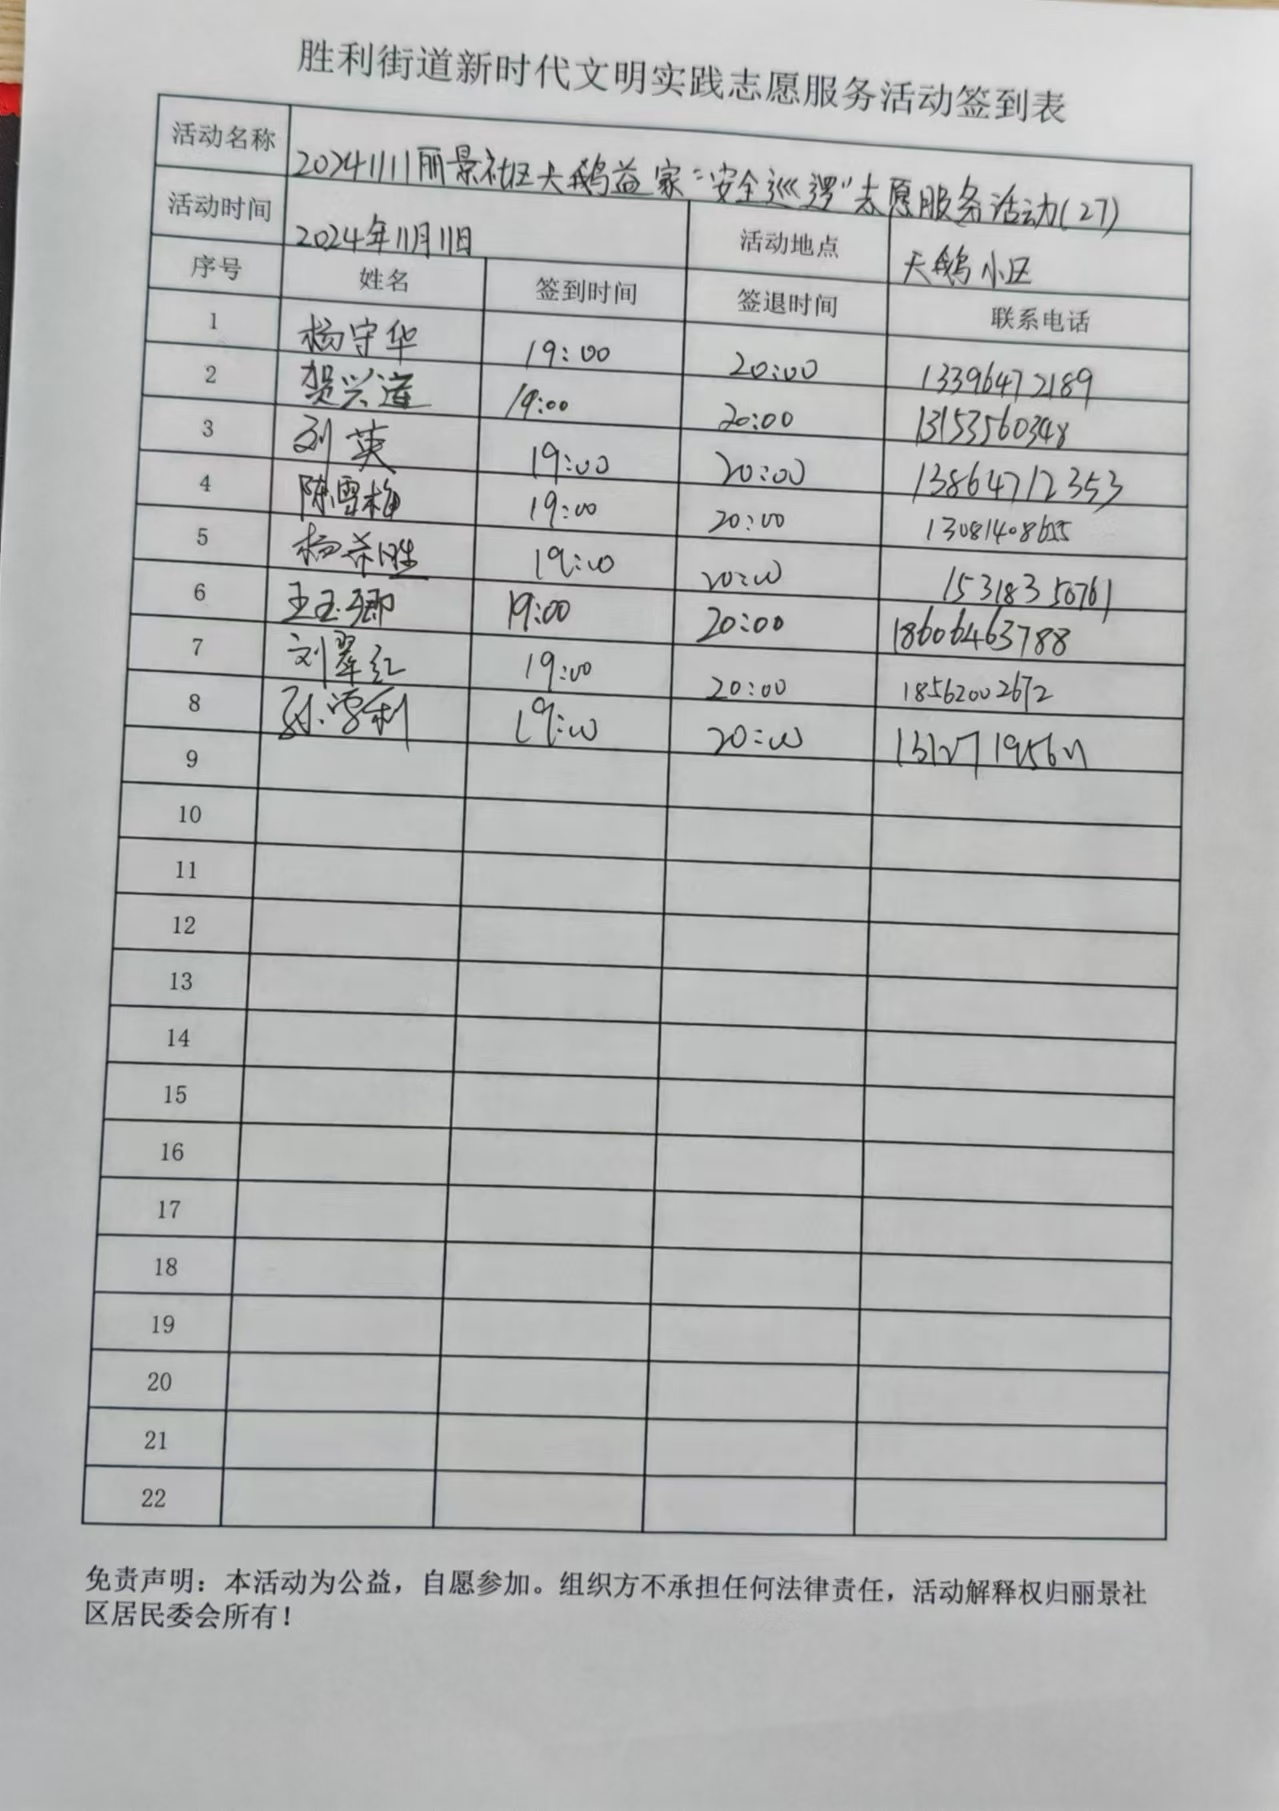 胜利街道新时代文明实践志愿服务活动签到表
活动名称 20241111丽景社区天鹅益家“安全巡逻”志愿服务活动(27)
活动时间 2024年11月11日 活动地点 天鹅小区
序号 姓名 签到时间 签退时间 联系电话
1 杨守华 19:00 20:00 13396472189
2 贺兴道 19:00 20:00 13153560348
3 刘英 19:00 20:00 13864712353
4 陈雪梅 19:00 20:00
5 杨希胜 19:00 20:00 15318350761
6 王玉卿 19:00 20:00 18606463788
7 刘翠红 19:00 20:00 18562002672
8 孙雪利 19:00 20:00
9
10
11
12
13
14
15
16
17
18
19
20
21
22
免责声明：本活动为公益，自愿参加。组织方不承担任何法律责任，活动解释权归丽景社
区居民委会所有！